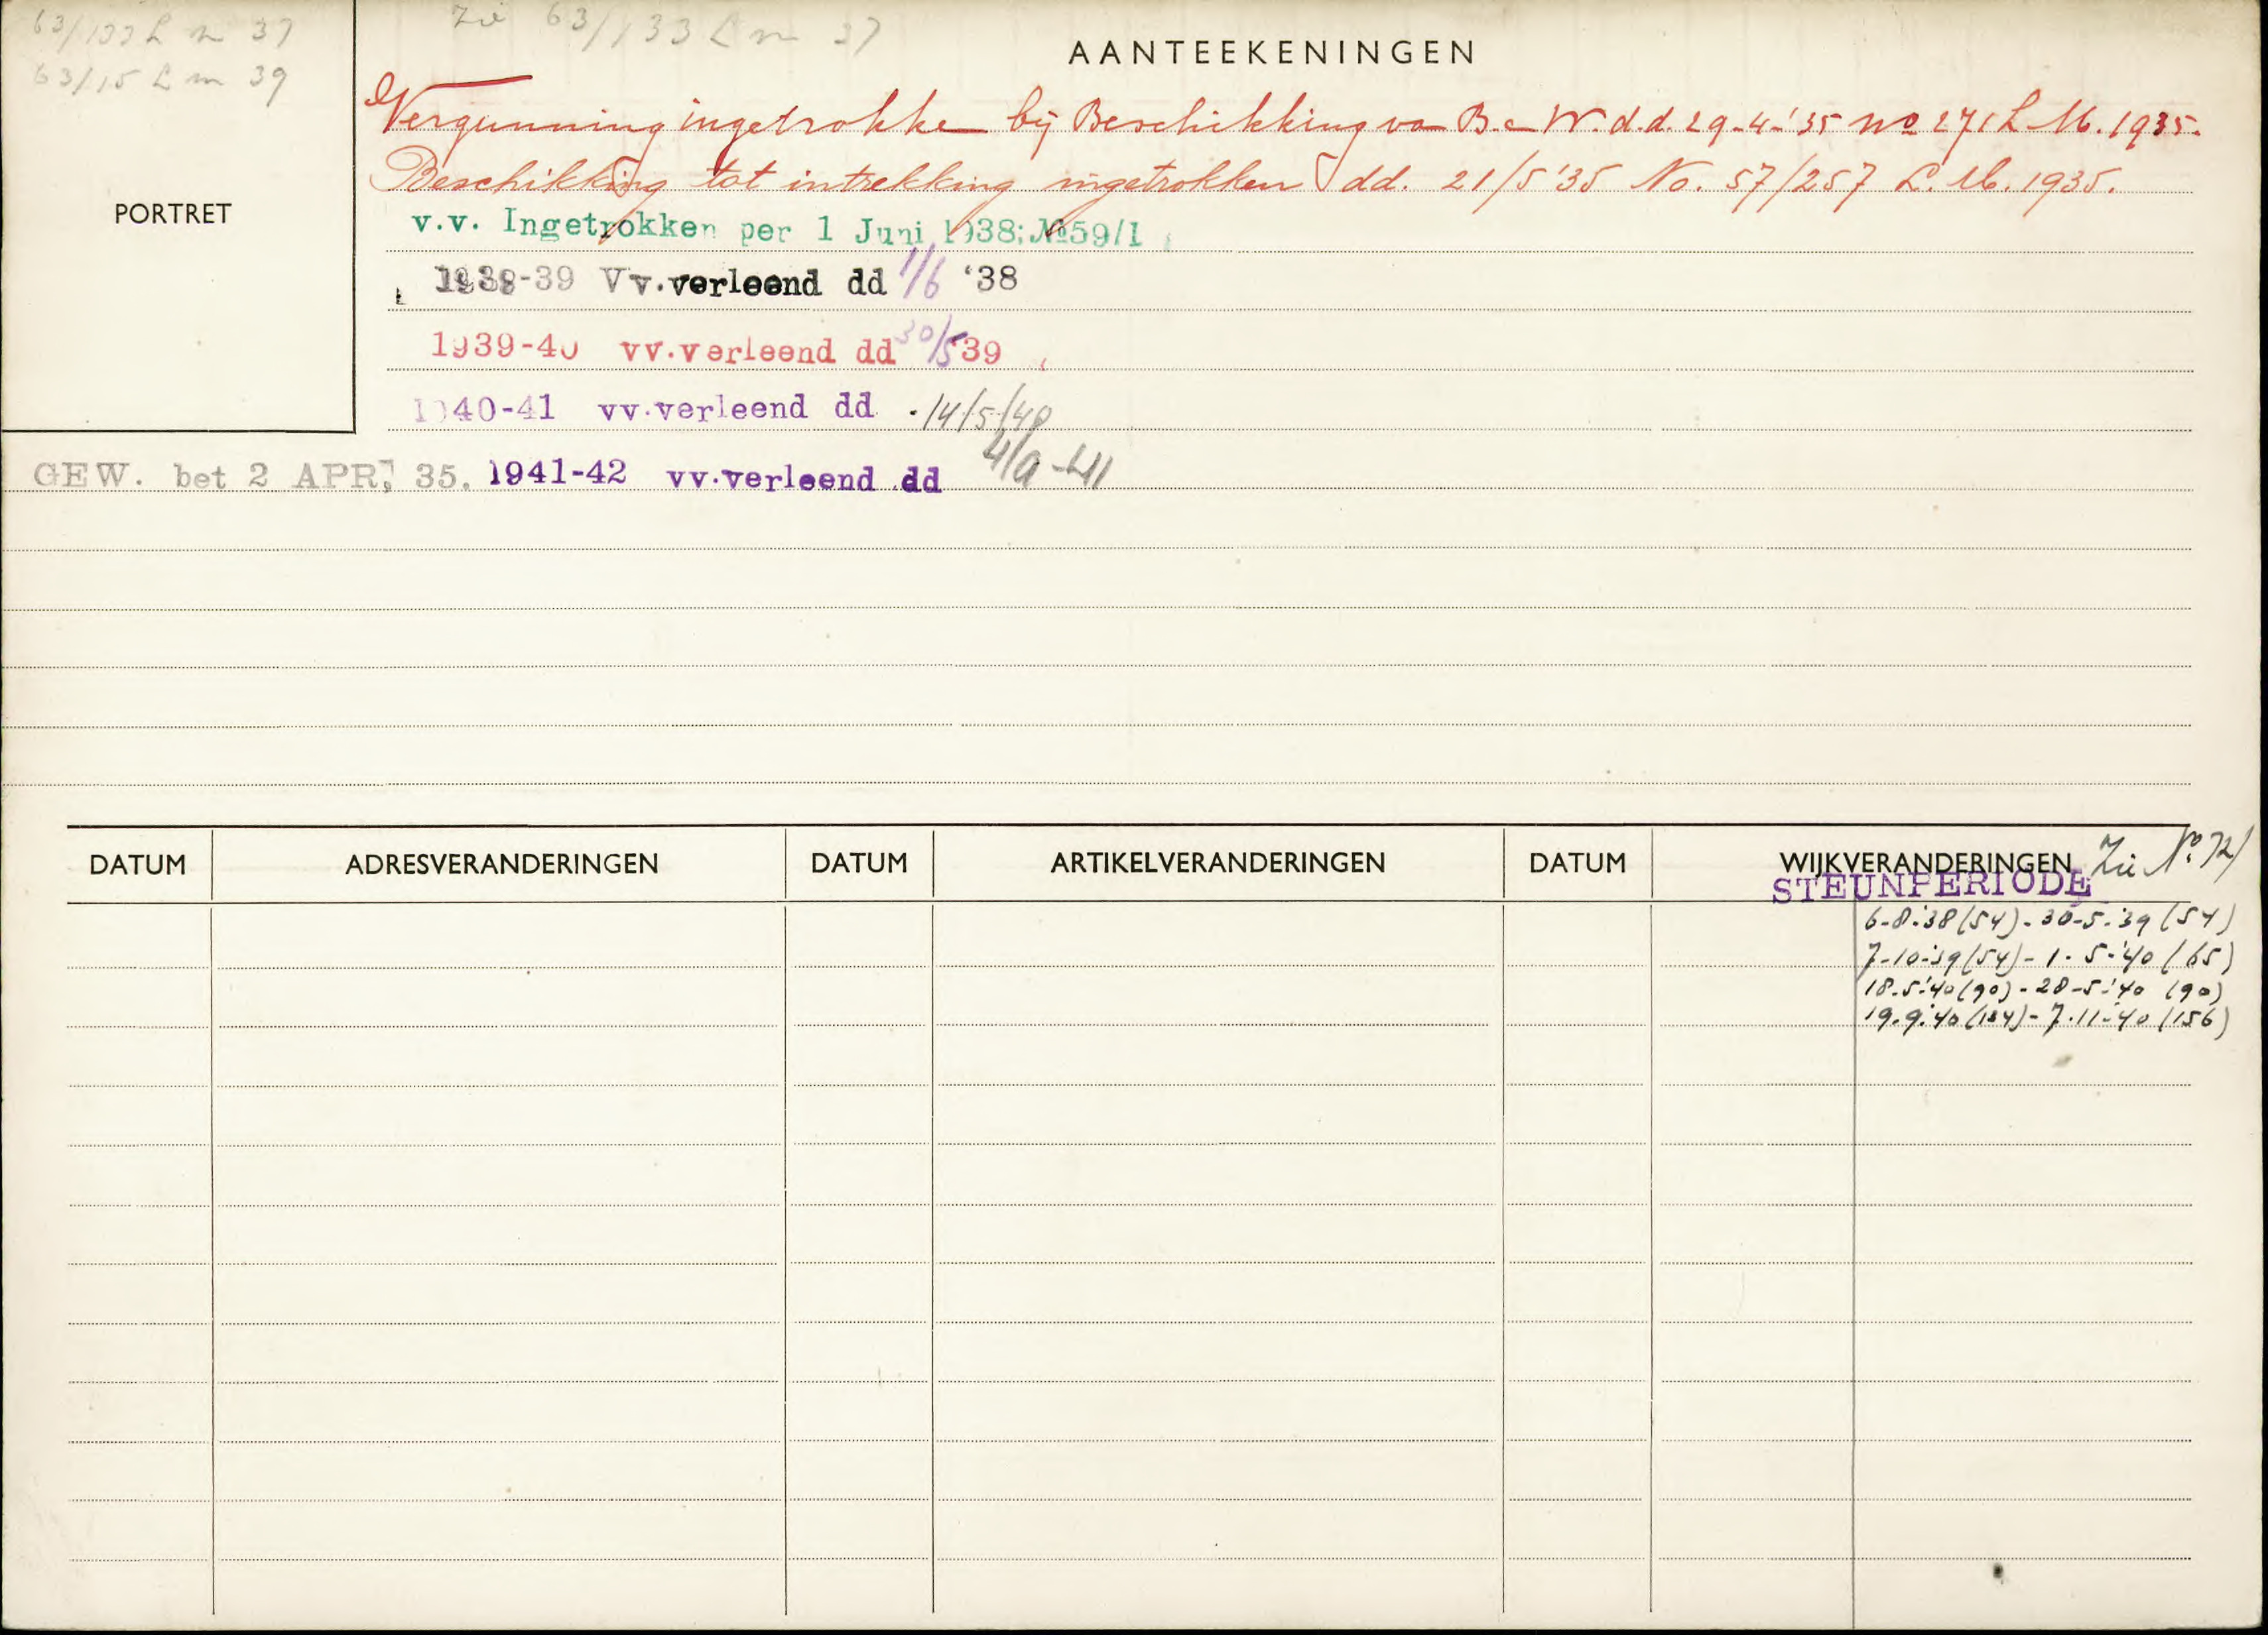 63/133 L m 37
63/15 L m 39
PORTRET
Zie 63/133 L m 37
AANTEEKENINGEN
Vergunning ingetrokken bij Beschikking van B. e W. d.d. 29-4-'35 no 271 L.M. 1935.
Beschikking tot intrekking ingetrokken dd. 21/5 '35 No. 57/257 L.M. 1935.
v.v. Ingetrokken per 1 Juni 1938; №59/1
1938-39 Vv.verleend dd 1/6 '38
1939-40 vv.verleend dd 30/5 39
1940-41 vv.verleend dd 14/5/40
GEW. bet 2 APR, 35. 1941-42 vv.verleend dd 4/9-41
DATUM ADRESVERANDERINGEN DATUM ARTIKELVERANDERINGEN DATUM WIJKVERANDERINGEN Zie No. 721
STEUNPERIODE
6-8-'38 (54) - 30-5-'39 (54)
7-10-'39 (54) - 1-5-'40 (65)
18-5-'40 (90) - 28-5-'40 (90)
19-9-'40 (184) - 7-11-'40 (156)